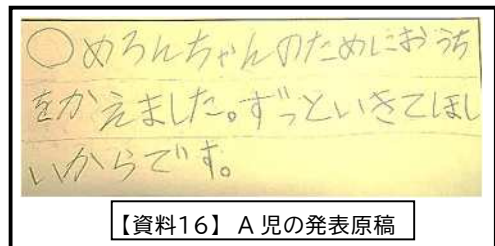 ○めろんちゃんのためにおうち
をかえました。ずっといきてほし
いからです。
【資料16】 A 児の発表原稿